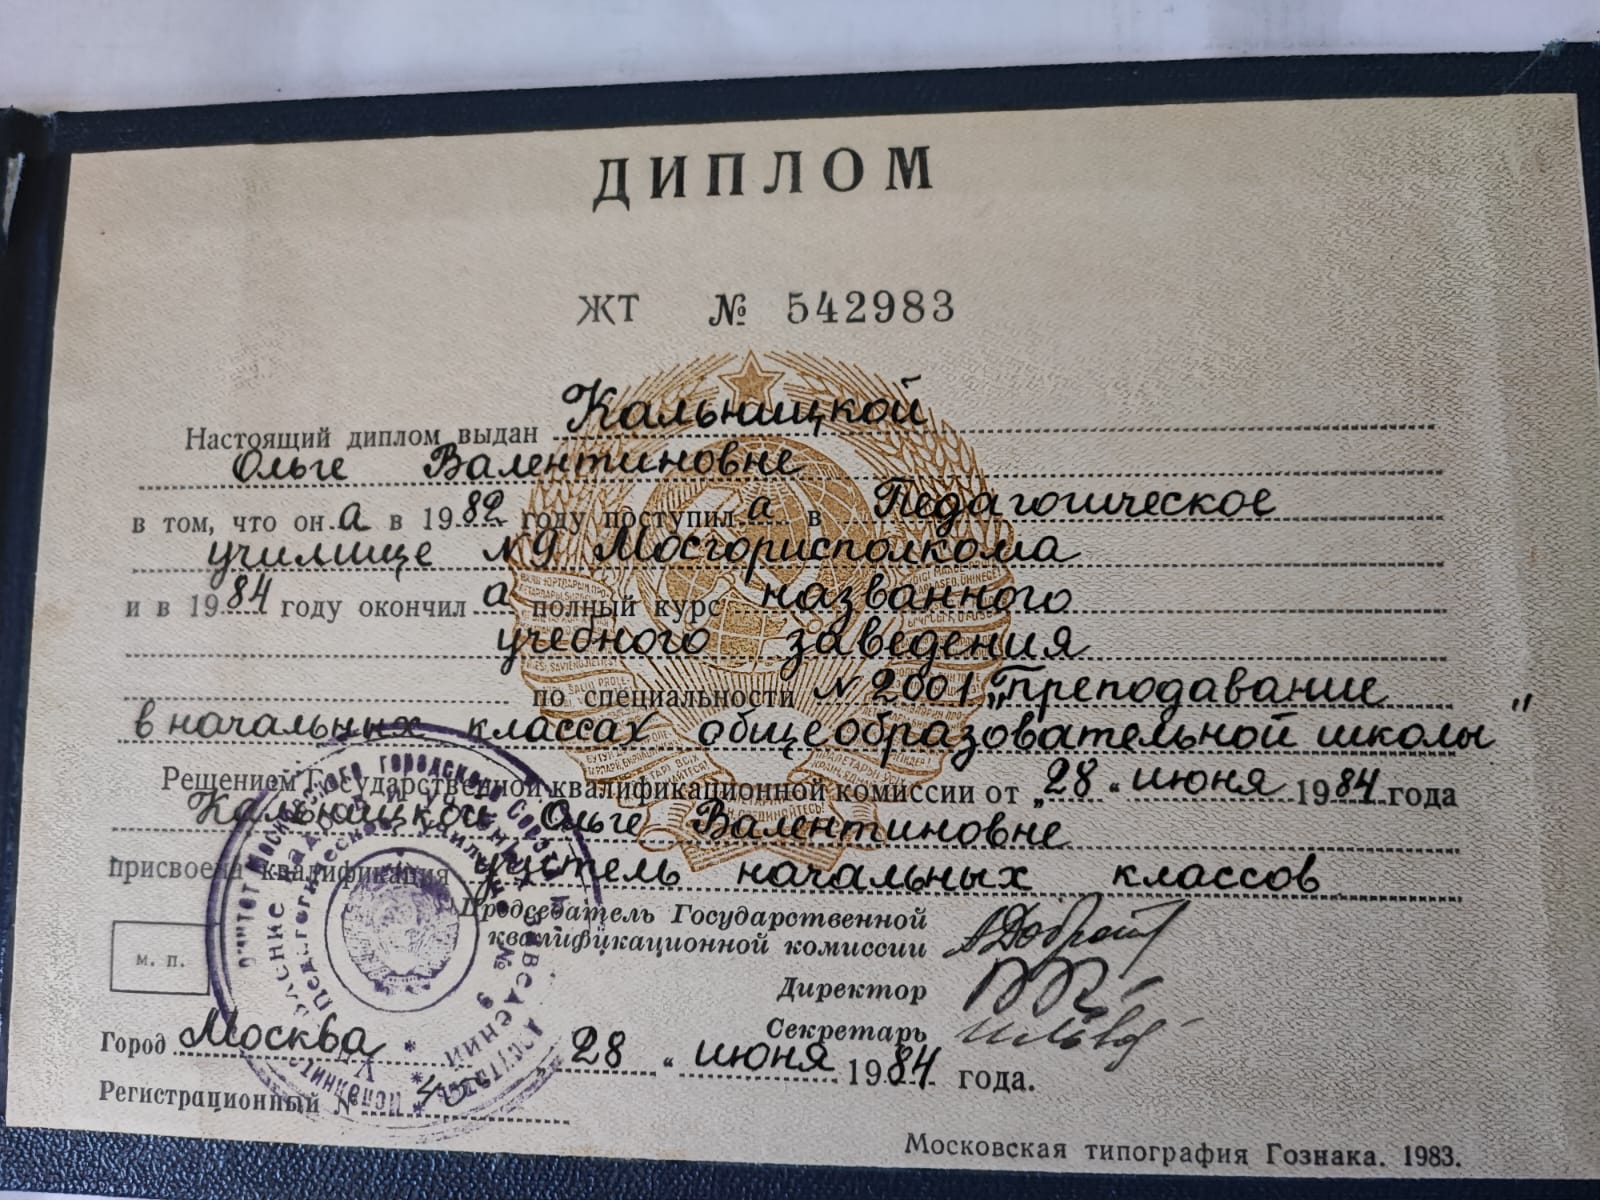 ДИПЛОМ
ЖТ № 542983
Настоящий диплом выдан Кальницкой
Ольге Валентиновне
в том, что он а в 1982 году поступил а в Педагогическое
училище №9 Мосгорисполкома
и в 1984 году окончил а полный курс названного
учебного заведения
по специальности № 2001 „Преподавание
в начальных классах общеобразовательной школы"
Решением Государственной квалификационной комиссии от „28" июня 1984 года
Кальницкой Ольге Валентиновне
присвоена квалификация учитель начальных классов
Председатель Государственной
квалификационной комиссии
Директор
Секретарь
м. п.
Город Москва 28 " июня 1984 года.
Регистрационный №
Московская типография Гознака. 1983.